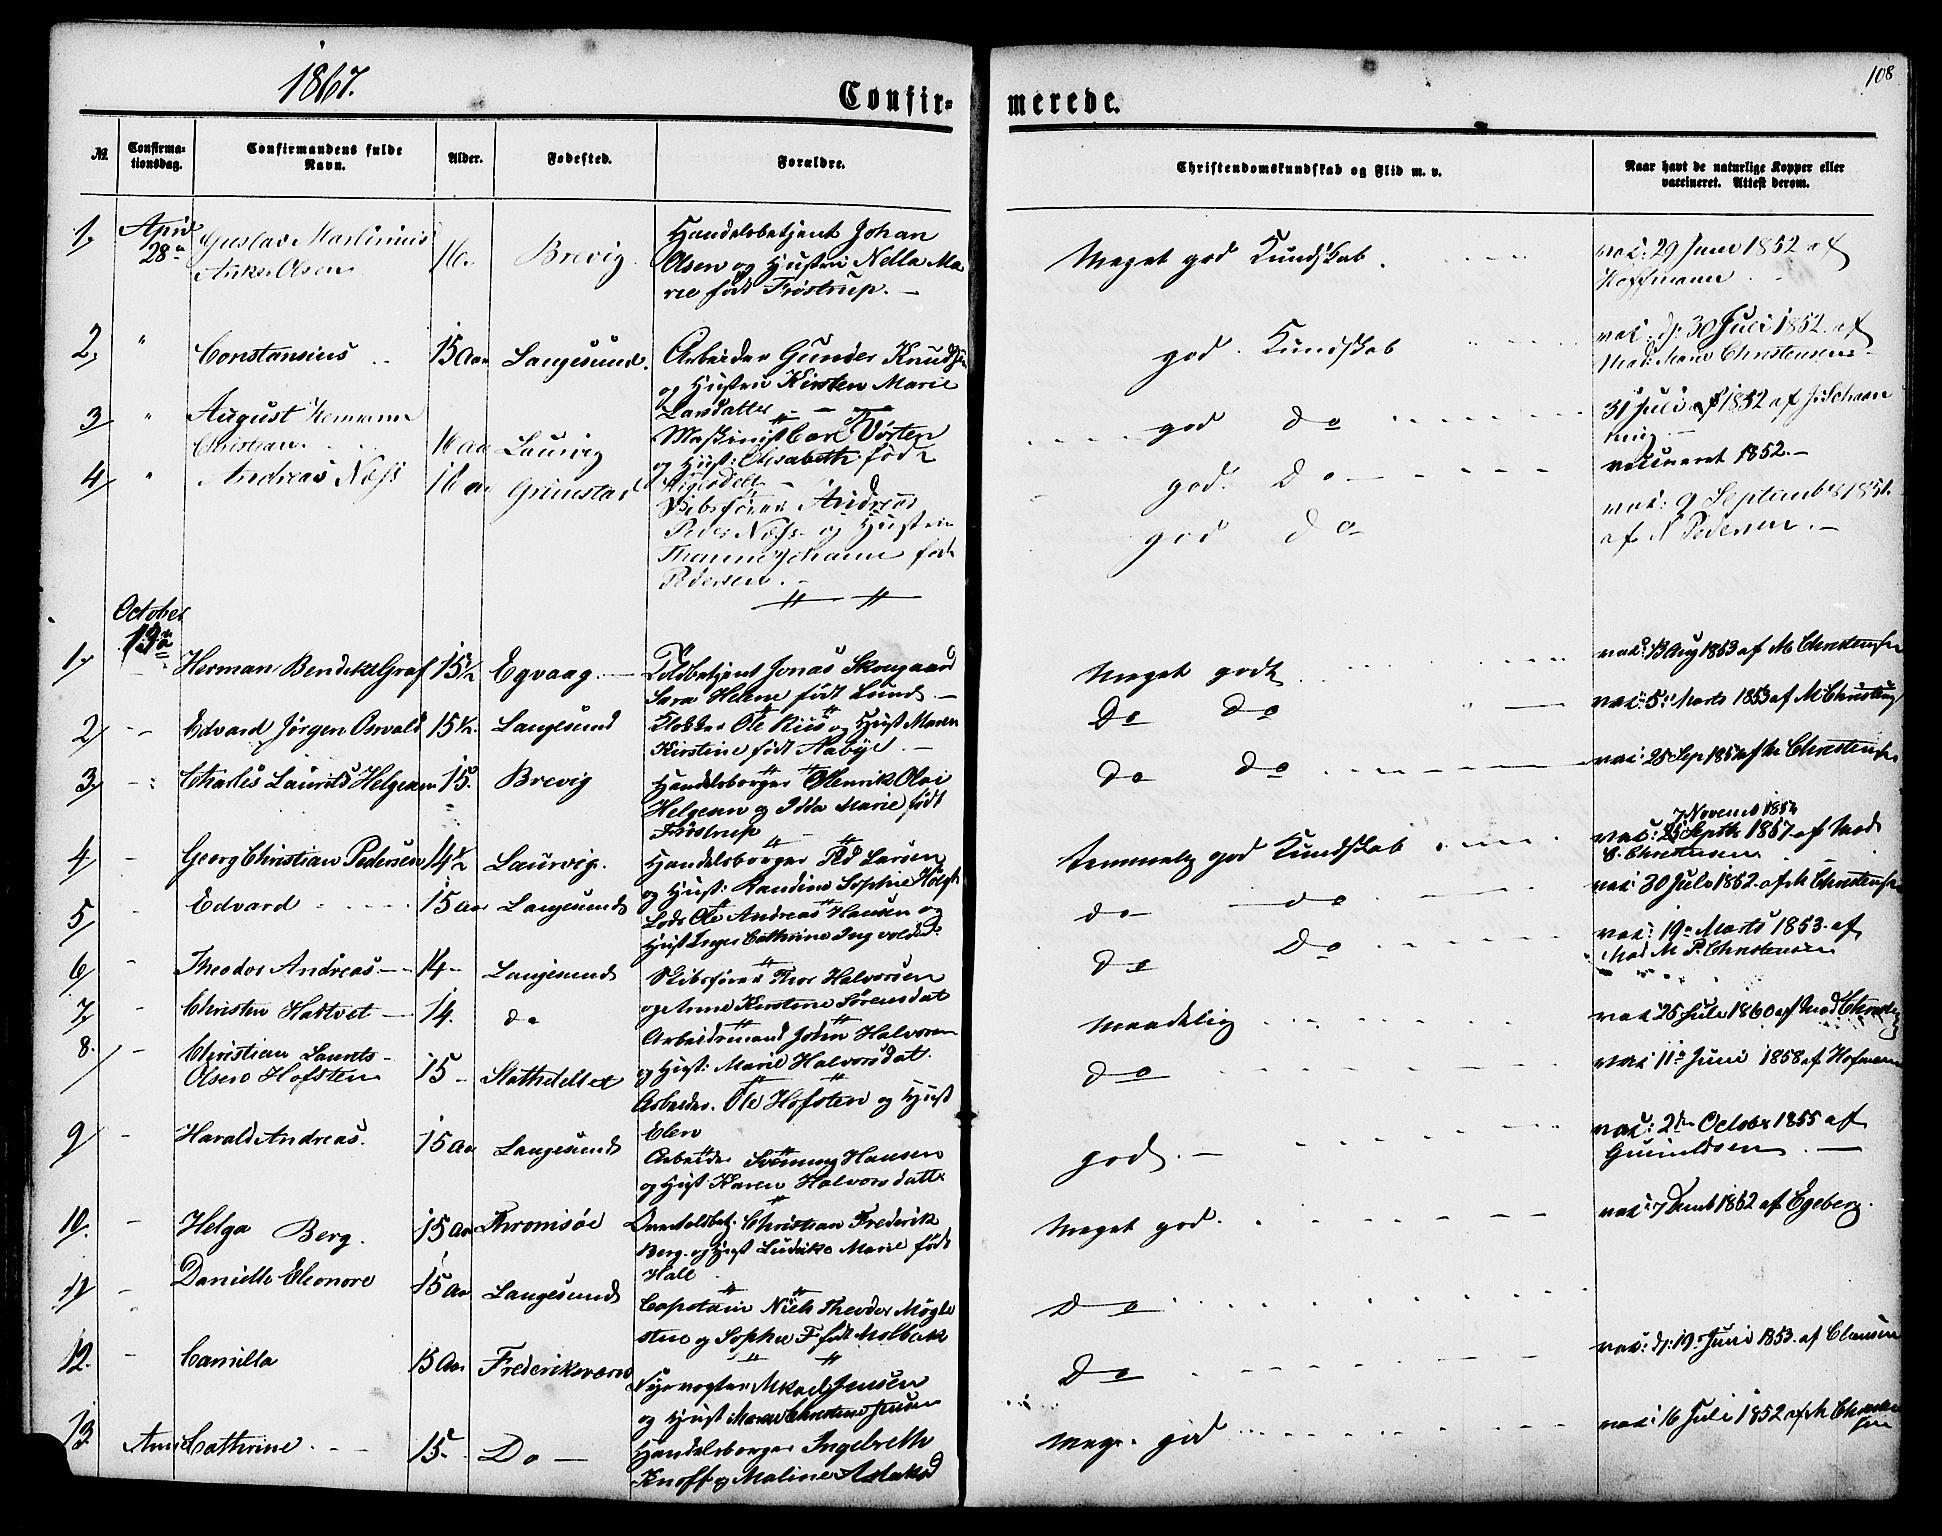 1867.
108
Confir-
merede.
№.
Confirma-
tionsdag.
Confirmandens fulde
Navn.
Alder.
Fødested.
Forældre.
Christendomskundskab og Flid m. v.
Naar havt de naturlige Kopper eller
vaccineret. Attest derom.
1. April 28 Gustav Martinius Brevig Handelsbetjent Johan Meget god Kundskab vac: 29 Juni 1852 af
Anker Olsen Olsen og Hustru Nella Ma Hoffmann
rie født Frøstrup. —
2, " Constansius 15 Aar Langesund. Arbeider Gunder Knudsen god Kundskab vac. d: 30 Juli 1852 af
og Hustru Kirsten Marie Mad: Marie Christensen
Larsdatter
3 " August Hermann 16 Aar Laurvig Maskinist Carl god do 31 Juli 1852 af
Christian og Hust: Elisabeth født
4 " Andreas Næss 16 aar Grimstad Skibsfører Andreas god do vaccineret 1852. —
Peder Næss og Hustru god do vac: 9 September 1851
Johanne født af N Pedersen. —
Pedersen.
October
13de
1. Herman Bendikt Graf 15½ Egvaag Toldbetjent Jonas Skougaard Meget godt vac: 13 Aug 1853 af M Christensen
Sara Helene født Lund. —
2 Edvard Jørgen Osvald 15½ Langesund Klokker Ole Riis og Hust Maren Do do vac: 5: Marts 1853 af M Christens
Kirstine født Aabye. —
3. Charles Laurits Helgesen 15. Brevig Handelsborger Henrik Olai do do vac: 25 Sep af M Christensen
Helgesen og Ida Marie født
Frøstrup
7 Novemb
4 Georg Christian Pedersen 14½ Laurvig. Handelsborger Larsen temmelig god Kundskab vac: Septbr 1857 af Mad
og Hust: Randine Sophie S. Christensen
5 Edvard 15 aar Langesund Lods Ole Andreas Hansen og do do vac: 30 Juli 1852 af M Christensen
Hust Inger Cathrine Ingvoldsd:
6 Theodor Andreas 14 Langesund Skibsfører Thor Halvorsen do Do vac: 19 Marts 1853 af
og Anne Kirstine Sørensdat Mad M P. Christensen
7 Christen Hattvet 14. do Arbeidsmand John Halvorsen maadelig vac 25 Juli 1860 af Mad Christen
og Hust: Marie Halvorsdatt.
8. Christian Laurits 15 Stathelle Arbeider. Ole Hofsten og Hust do vac 11 Juni 1858 af Hofmann
Olsen Hofsten Elen
9 Harald Andreas. 15 Aar Langesund Arbeider Svenning Hansen godt. — vac: 2 October 1855 af
og Hust Karen Halvorsdatt Gunnildsen. —
10. Helga Berg. 15 Aar Thromsøe Christian Frederik Meget god. vac: 7 Decemb 1862 af Egeberg.
Berg. og Hust Ludvika Marie født
Hall
11 Danielle Eleonore 15 Aar Langesund Capitain Niels Theodor Møgle Do
sten og Sophie F. født
12. Camilla 15 Aar Frederiksværn Fyrvogter Jensen Do vac: d: 19 Juni 1853 af Clausen
og Hust Maren Christine Jensen
13. Anne Cathrine 15. Do — Handelsborger Ingebreth Meg. god vac: 16 Juli 1852 af M Christen
Knoff og Maline sen